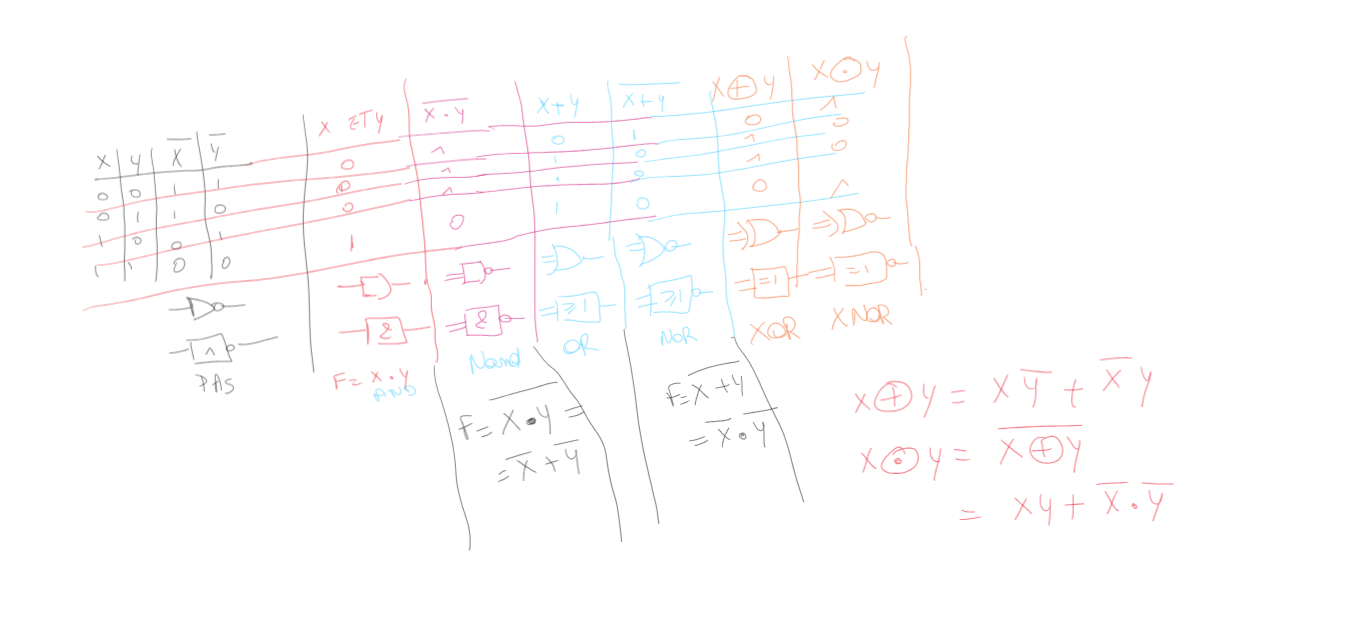 X Y X̅ Y̅ X ET Y X̅·̅Y̅ X+Y X̅+̅Y̅ X⊕Y X⊙Y
0 0 1 1 0 1 0 1 0 1
0 1 1 0 0 1 1 0 1 0
1 0 0 1 0 1 1 0 1 0
1 1 0 0 1 0 1 0 0 1
1 & & ≥1 ≥1 =1 =1
PAS F= X·Y Nand OR NOR XOR XNOR
AND
F= X̅·̅Y̅ =
= X̅+Y̅
F= X̅+̅Y̅
= X̅·Y̅
X⊕Y = XY̅ + X̅Y
X⊙Y = X̅⊕̅Y̅
= XY + X̅·Y̅